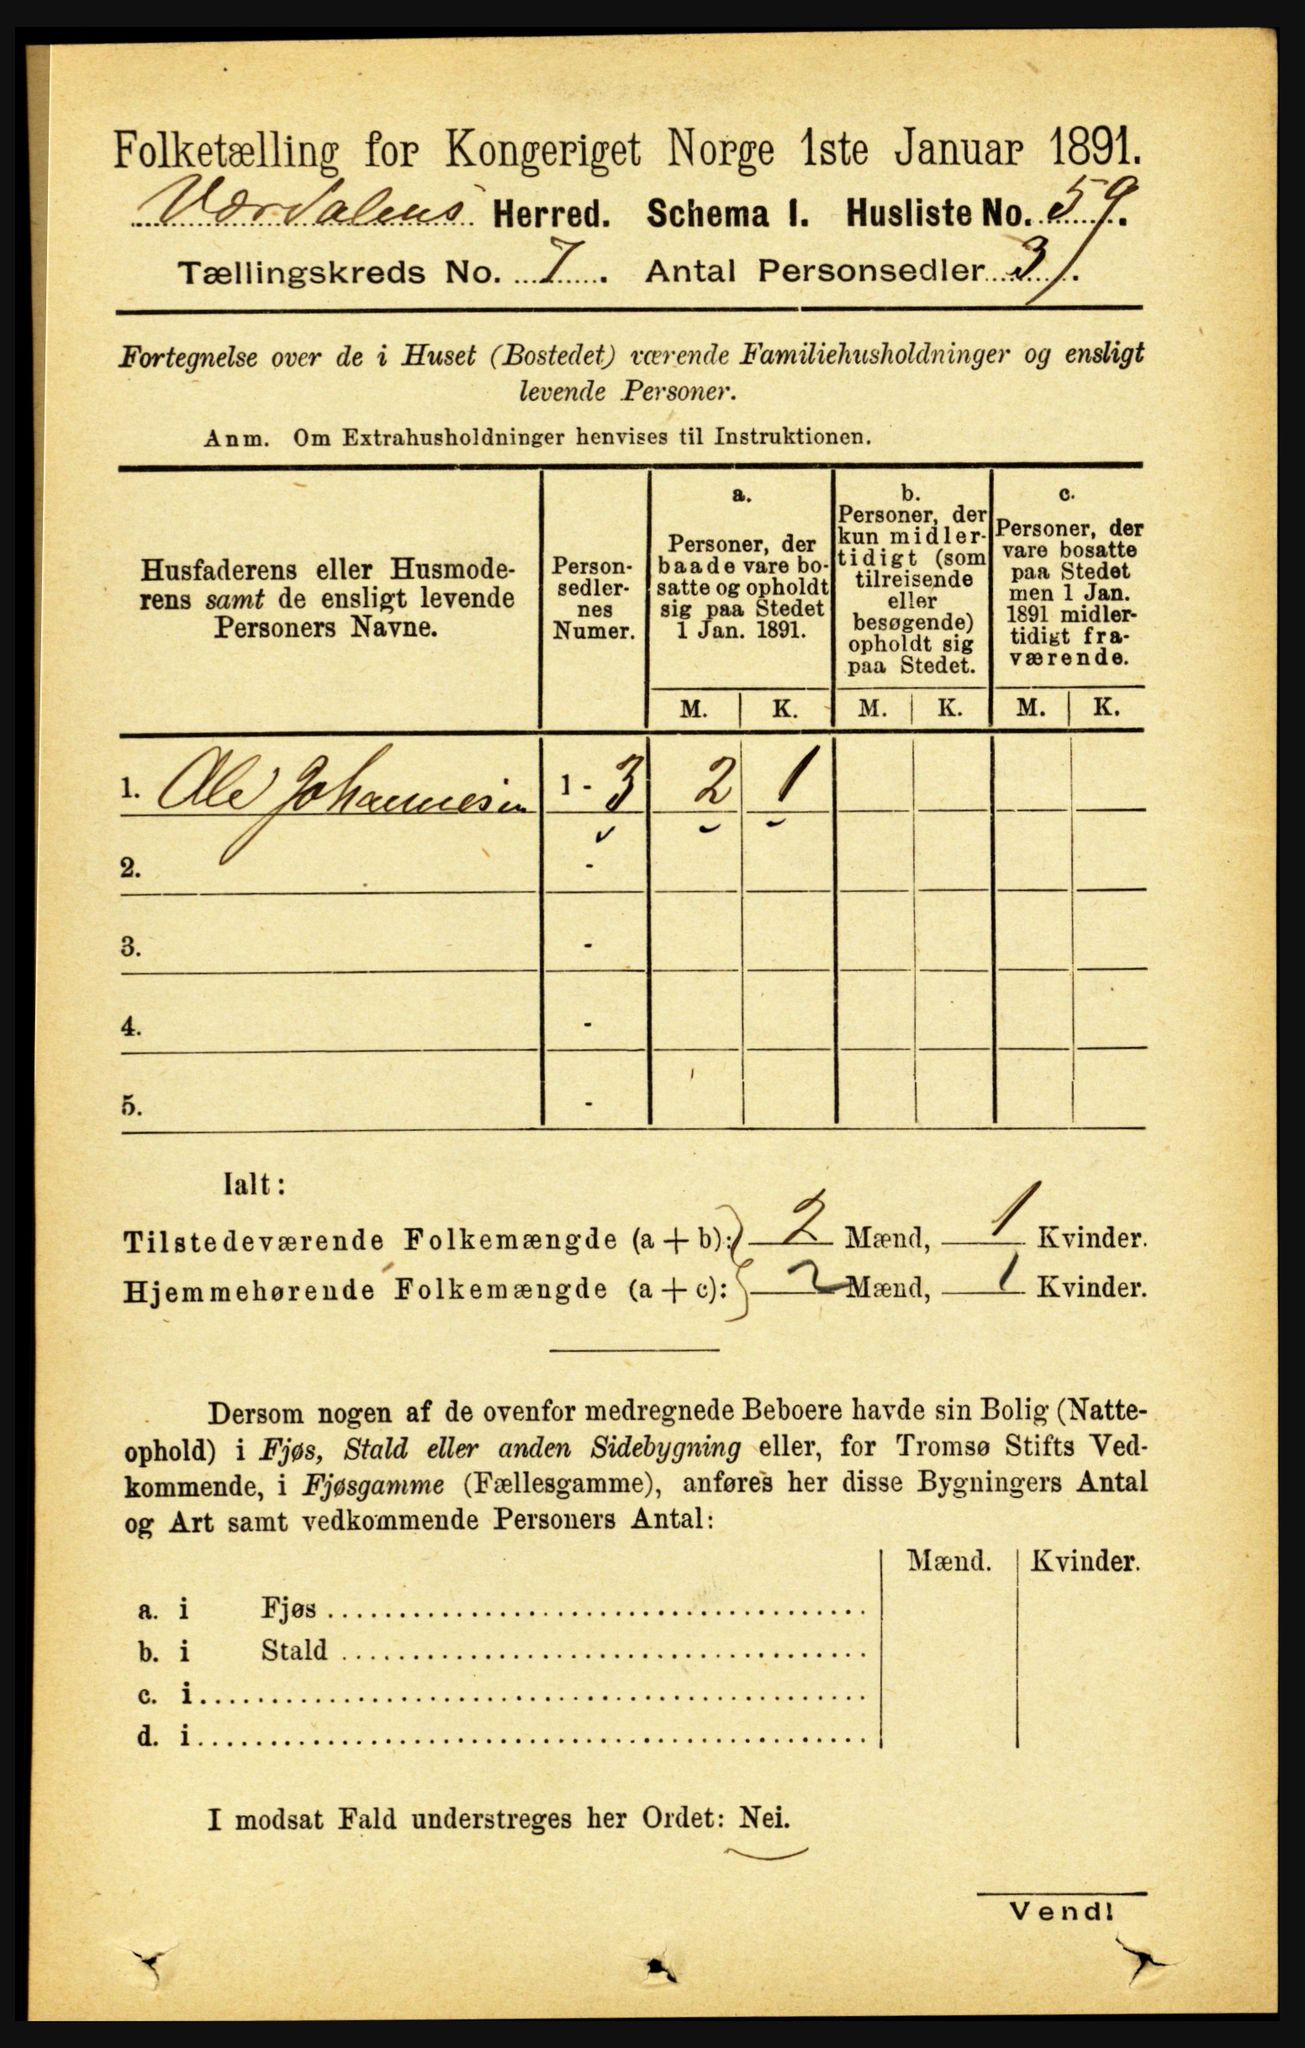 Folketælling for Kongeriget Norge 1ste Januar 1891.
Værdalens Herred. Schema I. Husliste No. 59.
Tællingskreds No. 7. Antal Personsedler 3.
Fortegnelse over de i Huset (Bostedet) værende Familiehusholdninger og ensligt
levende Personer.
Anm. Om Extrahusholdninger henvises til Instruktionen.
Husfaderens eller Husmode-
rens samt de ensligt levende
Personers Navne.
Person-
sedler-
nes
Numer.
a.
Personer, der
baade vare bo-
satte og opholdt
sig paa Stedet
1 Jan. 1891.
b.
Personer, der
kun midler-
tidigt (som
tilreisende
eller
besøgende)
opholdt sig
paa Stedet.
c.
Personer, der
vare bosatte
paa Stedet
men 1 Jan.
1891 midler-
tidigt fra-
værende.
M. K. M. K. M. K.
1. Ole Johannesen 1 - 3 2 1
2. -
3. -
4. -
5. -
Ialt:
Tilstedeværende Folkemængde (a + b): 2 Mænd, 1 Kvinder.
Hjemmehørende Folkemængde (a + c): 2 Mænd, 1 Kvinder.
Dersom nogen af de ovenfor medregnede Beboere havde sin Bolig (Natte-
ophold) i Fjøs, Stald eller anden Sidebygning eller, for Tromsø Stifts Ved-
kommende, i Fjøsgamme (Fællesgamme), anføres her disse Bygningers Antal
og Art samt vedkommende Personers Antal:
Mænd. Kvinder.
a. i Fjøs
b. i Stald
c. i
d. i
I modsat Fald understreges her Ordet: Nei.
Vend!